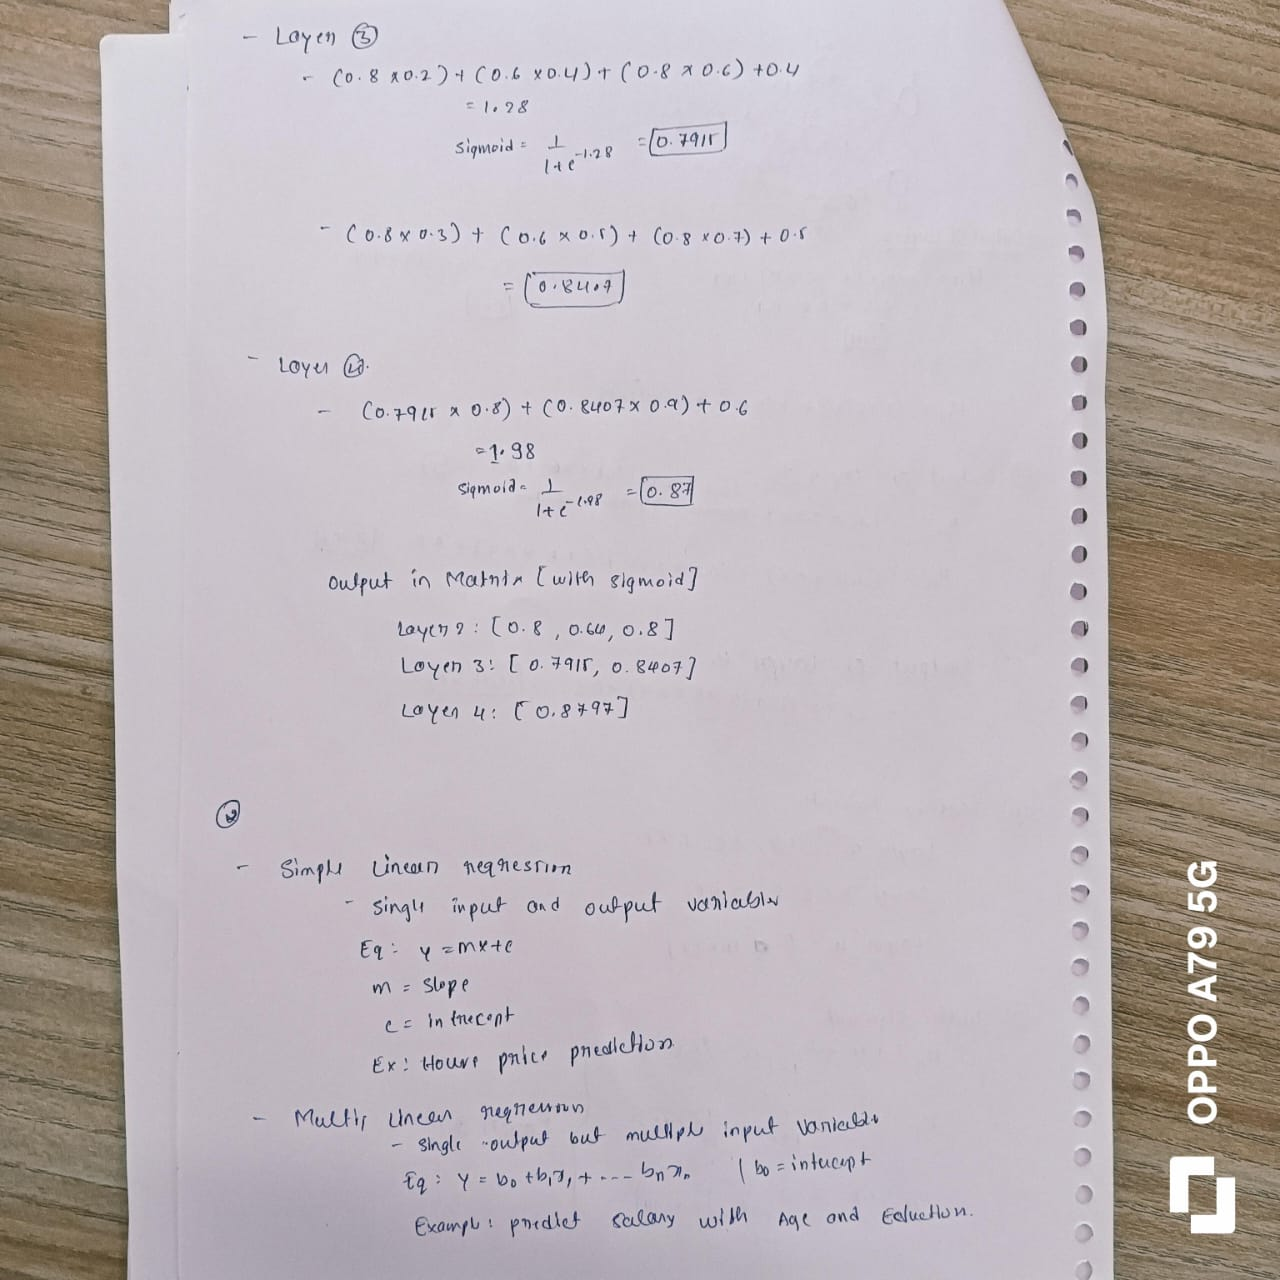 - Layer ③
- (0.8 x 0.2) + (0.6 x 0.4) + (0.8 x 0.6) + 0.4
= 1.28
Sigmoid = 1 / 1+e^-1.28 = 0.7915
- (0.8 x 0.3) + (0.6 x 0.5) + (0.8 x 0.7) + 0.5
= 0.8407
- Layer ④.
- (0.7915 x 0.8) + (0.8407 x 0.9) + 0.6
= 1.98
Sigmoid = 1 / 1+e^-1.98 = 0.87
Output in Matrix [with sigmoid]
Layer 2: [0.8, 0.60, 0.8]
Layer 3: [0.7915, 0.8407]
Layer 4: [0.8797]
- Simple Linear regression
- Single input and output variable
Eq: y = mx+c
m = slope
c = intrecept
Ex: House price prediction
- Multip Linear regression
- Single output but multiple input variable
Eq: y = b0 + b1x1 + --- bnxn | b0 = intercept
Example: predict salary with Age and Eduction.
OPPO A79 5G